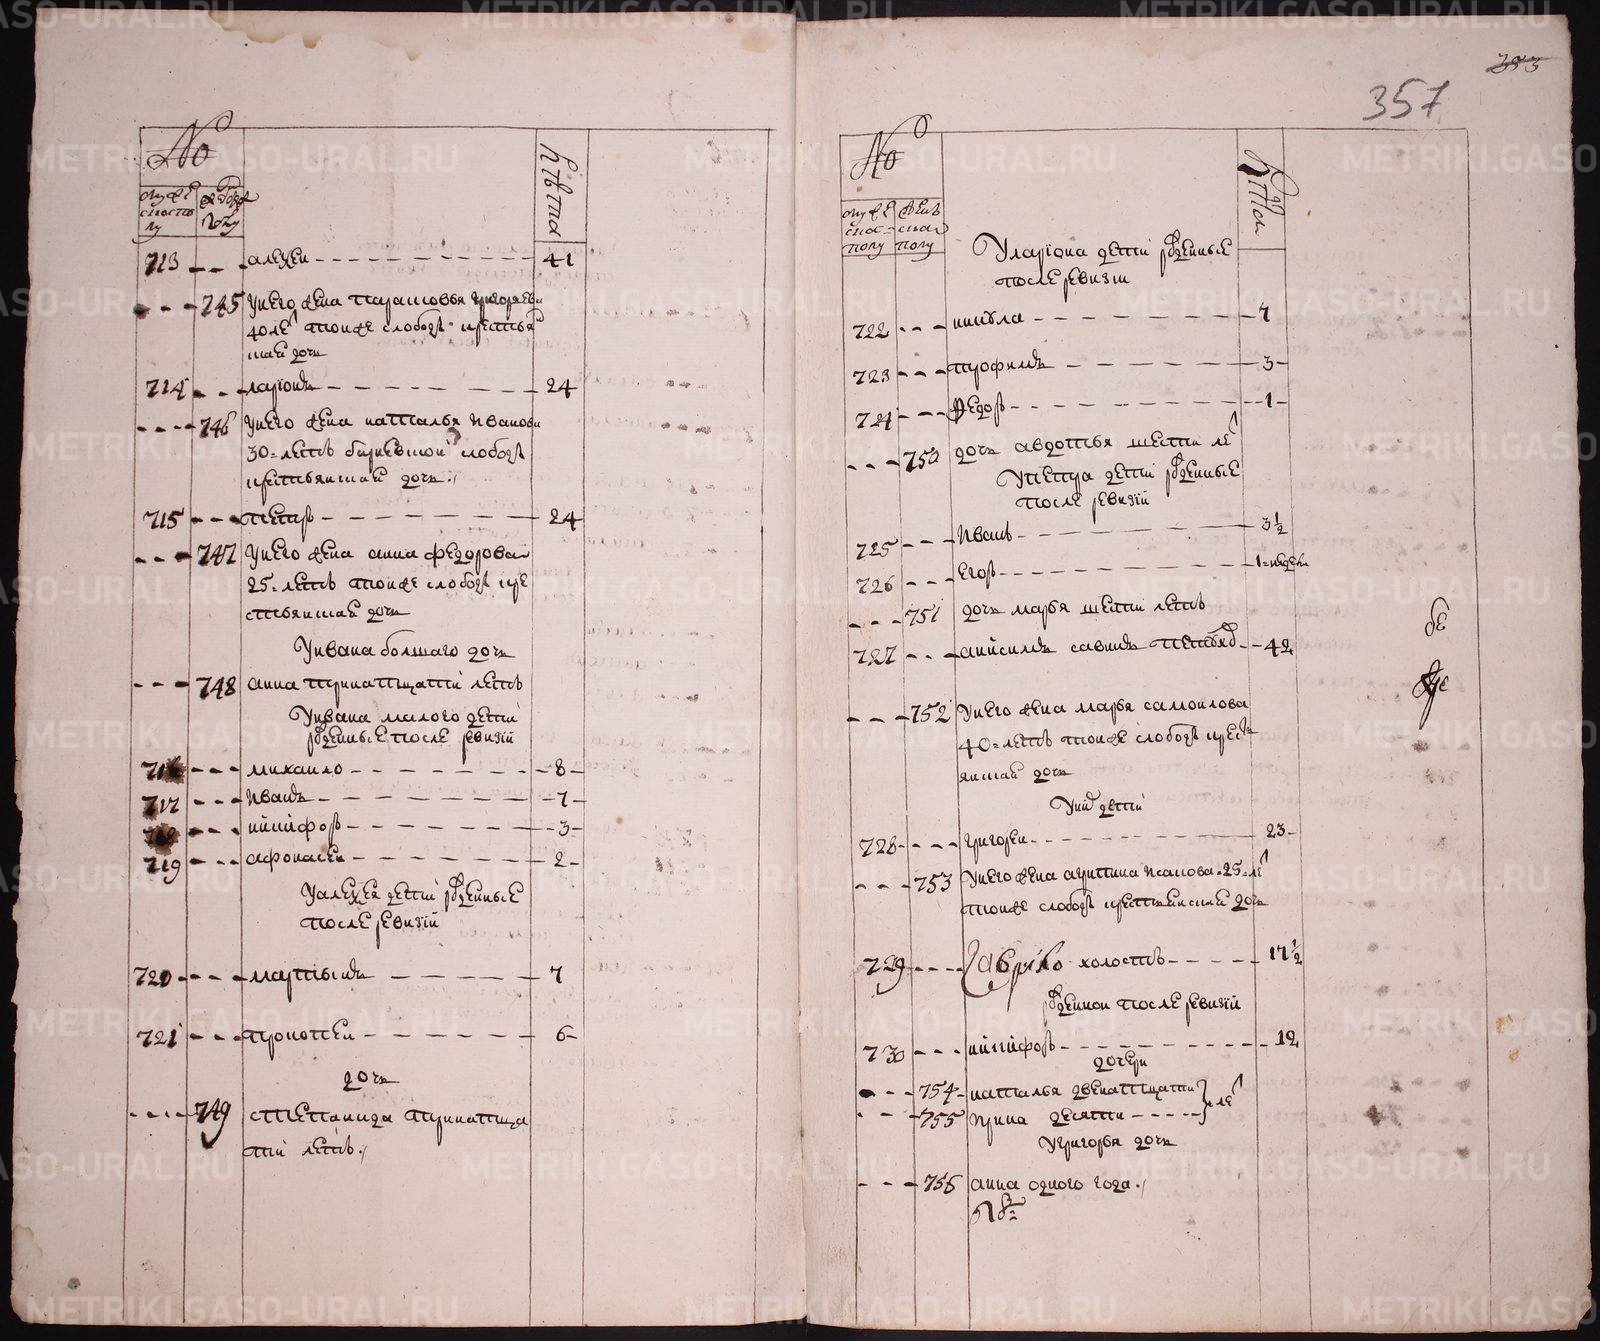 №
мужеска полу
женска полу
лѣта
713 алеѯеи 41
745 у него жена парасковья григорьева
40 лѣ тоиже слободы крестья
нская дочь
714 ларионъ 24
746 у него жена наталья иванова
30 = летъ слободы
крестьянская дочь
715 петръ 24
747 у него жена анна федорова
25 = летъ тоиже слободы кре
стьянская дочь
У ивана большаго дочь
748 анна тринатцати летъ
У ивана малого дети
рожденные после ревизии
716 михаило 8
717 иванъ 7
718 никифоръ 3
719 афонасеи 2
У алеѯея дети рожденные
после ревизии
720 мартынъ 7
721 прокопеи 6
дочь
749 степанида тринатца
ти летъ
357
№
мужеска полу
женска полу
лѣта
У ларiона дети рожденные
после ревизiи
722 никола 7
723 трофимъ 3
724 федоръ 1
750 дочь авдотья шести лѣ
У петра дети рожденные
после ревизiи
725 иванъ 3½
726 егоръ 1 = недели
751 дочь марья шести летъ
727 анисимъ савинъ 42
752 у него жена марья самоилова
40 = летъ тоиже слободы крест
янская дочь
У них дети
728 григореи 23
753 у него жена агрипина 25 = лѣ
тоиже слободы крестьянская дочь
729 Гаврило холостъ 17½
рожденнои после ревизiи
730 никифоръ 12
дочери
754 наталья двенатцати
755 ирина десяти лѣ
У григорья дочь
756 анна одного года